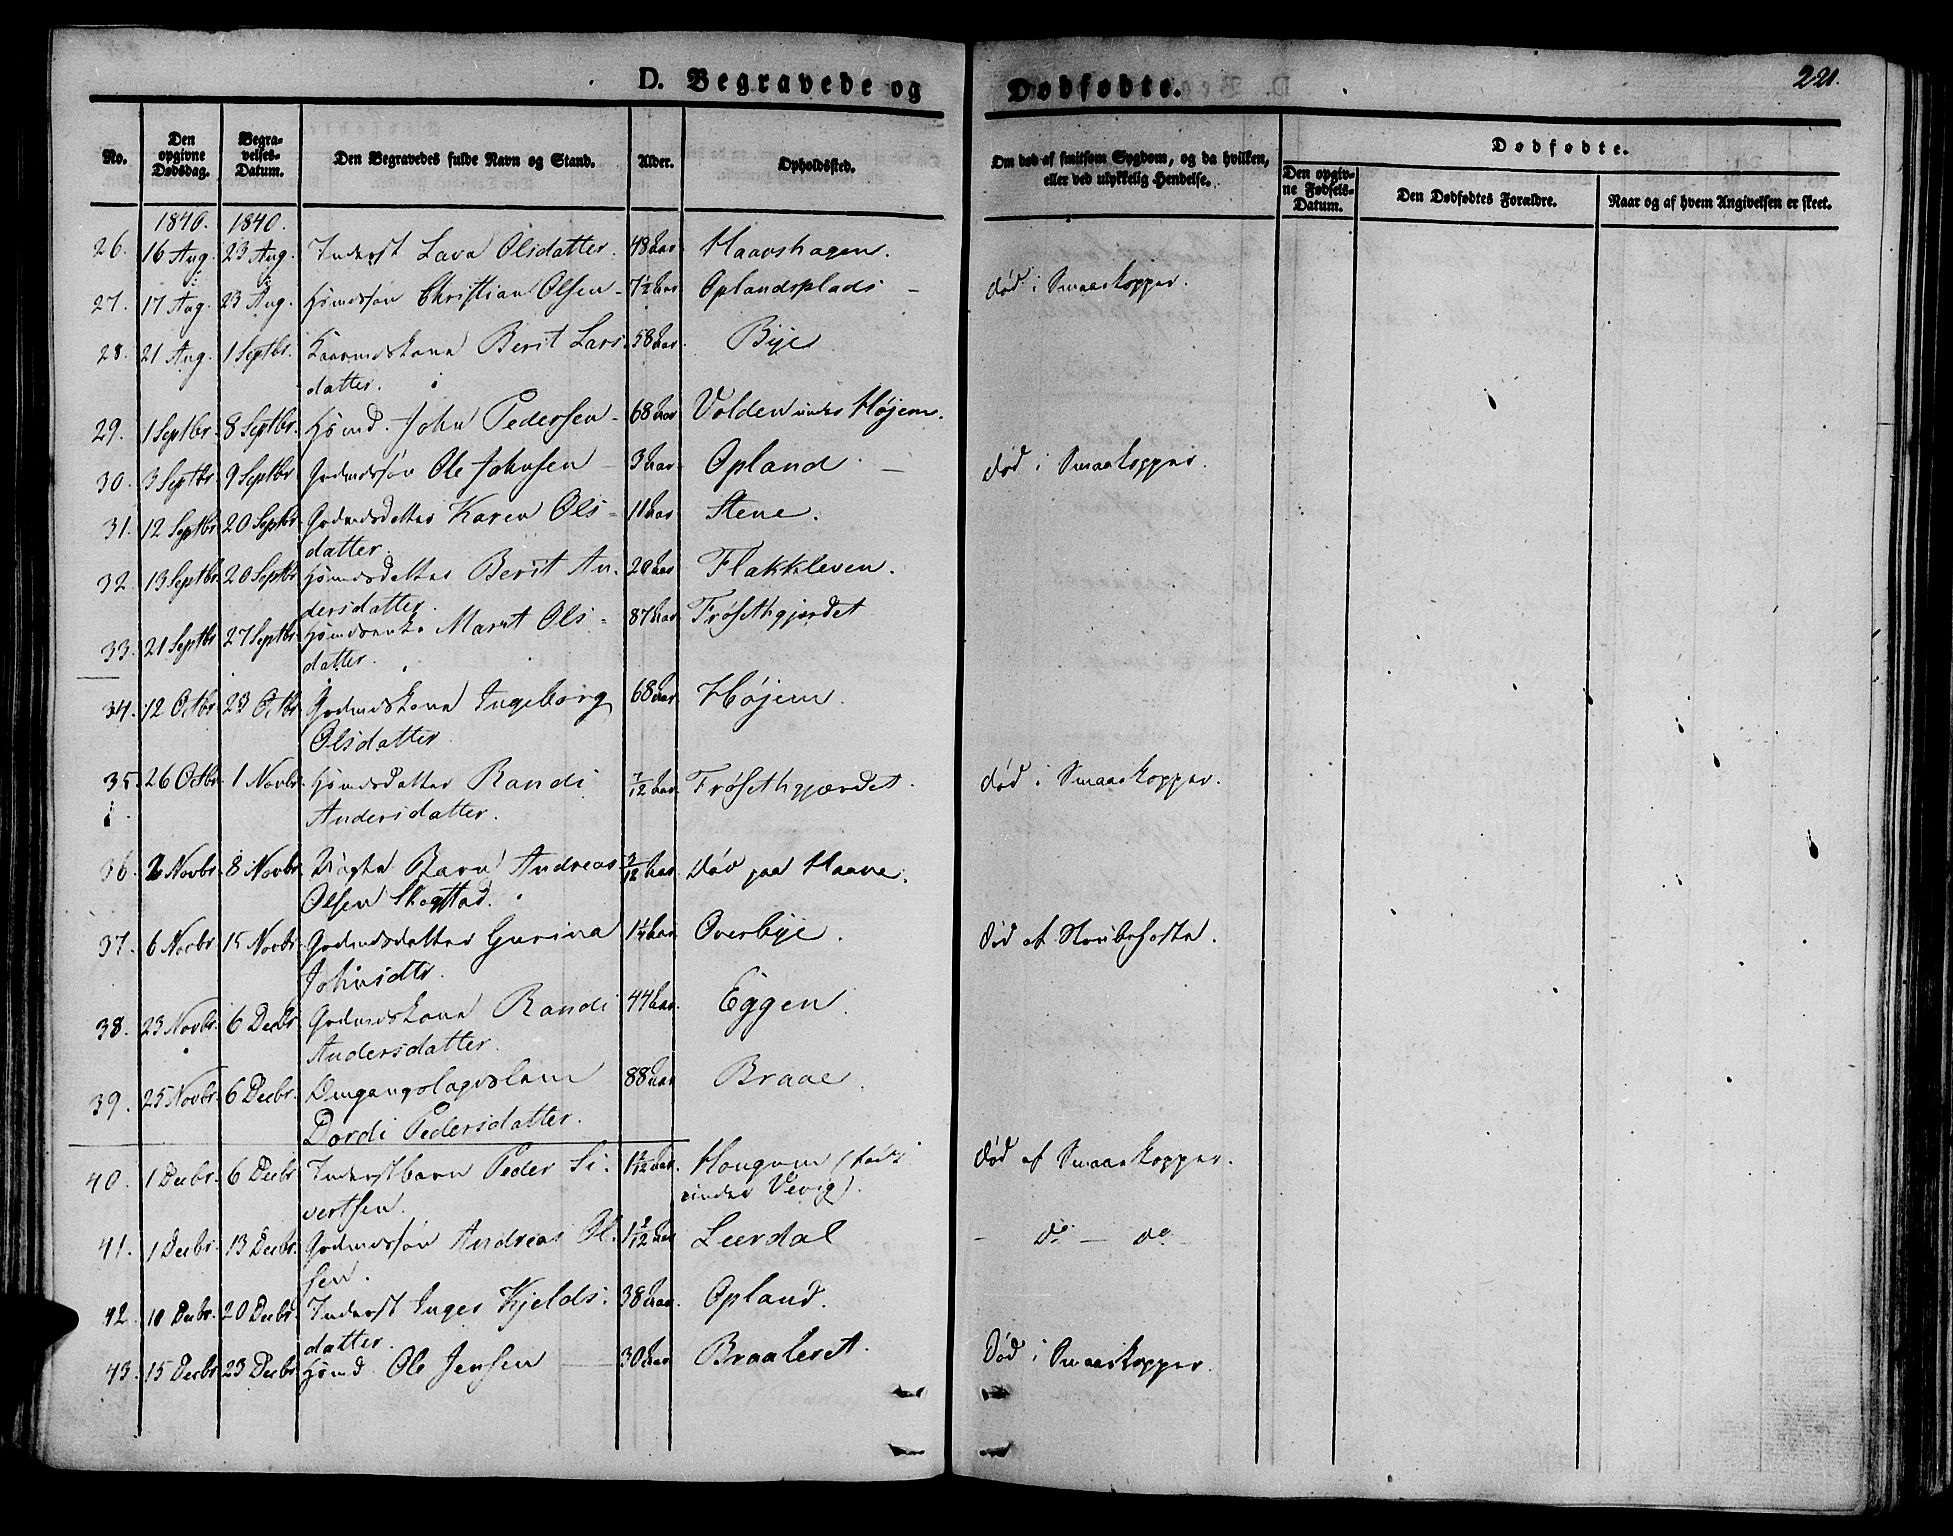 D. Begravede og Dødfødte.
221.
No.
Den opgivne Dødsdag.
Begravelses-Datum.
Den Begravedes fulde Navn og Stand.
Alder.
Opholdssted.
Om død af smitsom Sygdom, og da hvilken, eller ved ulykkelig Hendelse.
Dødfødte.
Den opgivne Fødsels-Datum.
Den Dødfødtes Forældre.
Naar og af hvem Angivelsen er skeet.
1840. 1840.
26. 16 Aug. 23 Aug. Inderst Lava Olsdatter. 48 aar Haavshagen.
27. 17 Aug. 23 Aug. Hsmdssøn Christian Olsen 7½ aar Oplandsplads død i Smaaekopper.
28. 21 Aug. 1 Septbr. Kaarmdskone Berit Lars- 58 aar Bye
datter.
29. 1 Septbr. 8 Septbr. Hsmd. John Pedersen 68 aar Volden under Højem.
30. 3 Septbr 9 Septbr Grdmdssøn Ole Johnsen 3 aar Opland død i Smaaekopper.
31. 12 Septbr 20 Septbr Grdmdsdatter Karen Ols- 11 aar Stene.
datter.
32. 13 Septbr 20 Septbr Hsmdsdatter Berit An- 20 aar Flakkleven.
dersdatter.
33. 21 Septbr 27 Septbr Hsmdsenke Marit Ols- 87 aar Frøsethgjærdet
datter.
34. 12 Octbr 23 Octbr Grdmdskone Ingeborg 68 aar Højem.
Olsdatter.
35. 26 Octbr 1 Novbr. Hsmdsdatter Randi 7/12 aar Frøsethgjærdet. død i Smaaekopper.
Andersdatter.
36. 2 Novbr. 8 Novbr. Uægte Barn Andreas aar død paa Haave.
Olsen Skogstad.
37. 6 Novbr 15 Novbr Grdmdsdatter Gurina 1¼ aar Overbye. død af Strubehoste.
Johnsdtr.
38. 23 Novbr. 6 Decbr. Grdmdskone Randi 44 aar. Eggen.
Andersdatter.
39. 25 Novbr. 6 Decbr. Omgangslægdslem 88 aar Braae.
Dordi Pedersdatter.
40. 1 Decbr. 6 Decbr Inderstbarn Peder Si- aar. Hougum (død i død af Smaaekopper.
vertsen. under Vevig).
41. 1 Decbr. 13 Decbr. Grdmdssøn Andreas Ol- aar Leerdal – do – do
sen.
42. 10 Decbr. 20 Decbr. Inderst Inger Kjelds- 38 aar. Opland.
datter.
43. 15 Decbr 23 Decbr Hsmd Ole Jensen 30 aar Braaleret. Død i Smaaekopper.